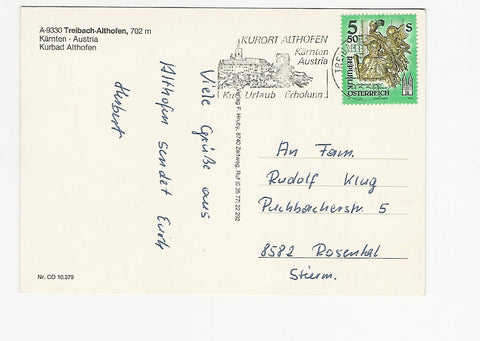 A-9330 Treibach-Althofen, 702 m
Kärnten · Austria
Kurbad Althofen
KURORT ALTHOFEN
Kärnten
Austria
Kur Urlaub Erholung
5 50 S
KÄRNTEN
ÖSTERREICH
Viele Grüße aus
Althofen sendet Euch
Herbert
F. Hruby, 8740 Zeltweg, Ruf (0 35 77) 22 292
An Fam.
Rudolf Klug
Puchbacherstr. 5
8582 Rosental
Steierm.
Nr. CO 10.379